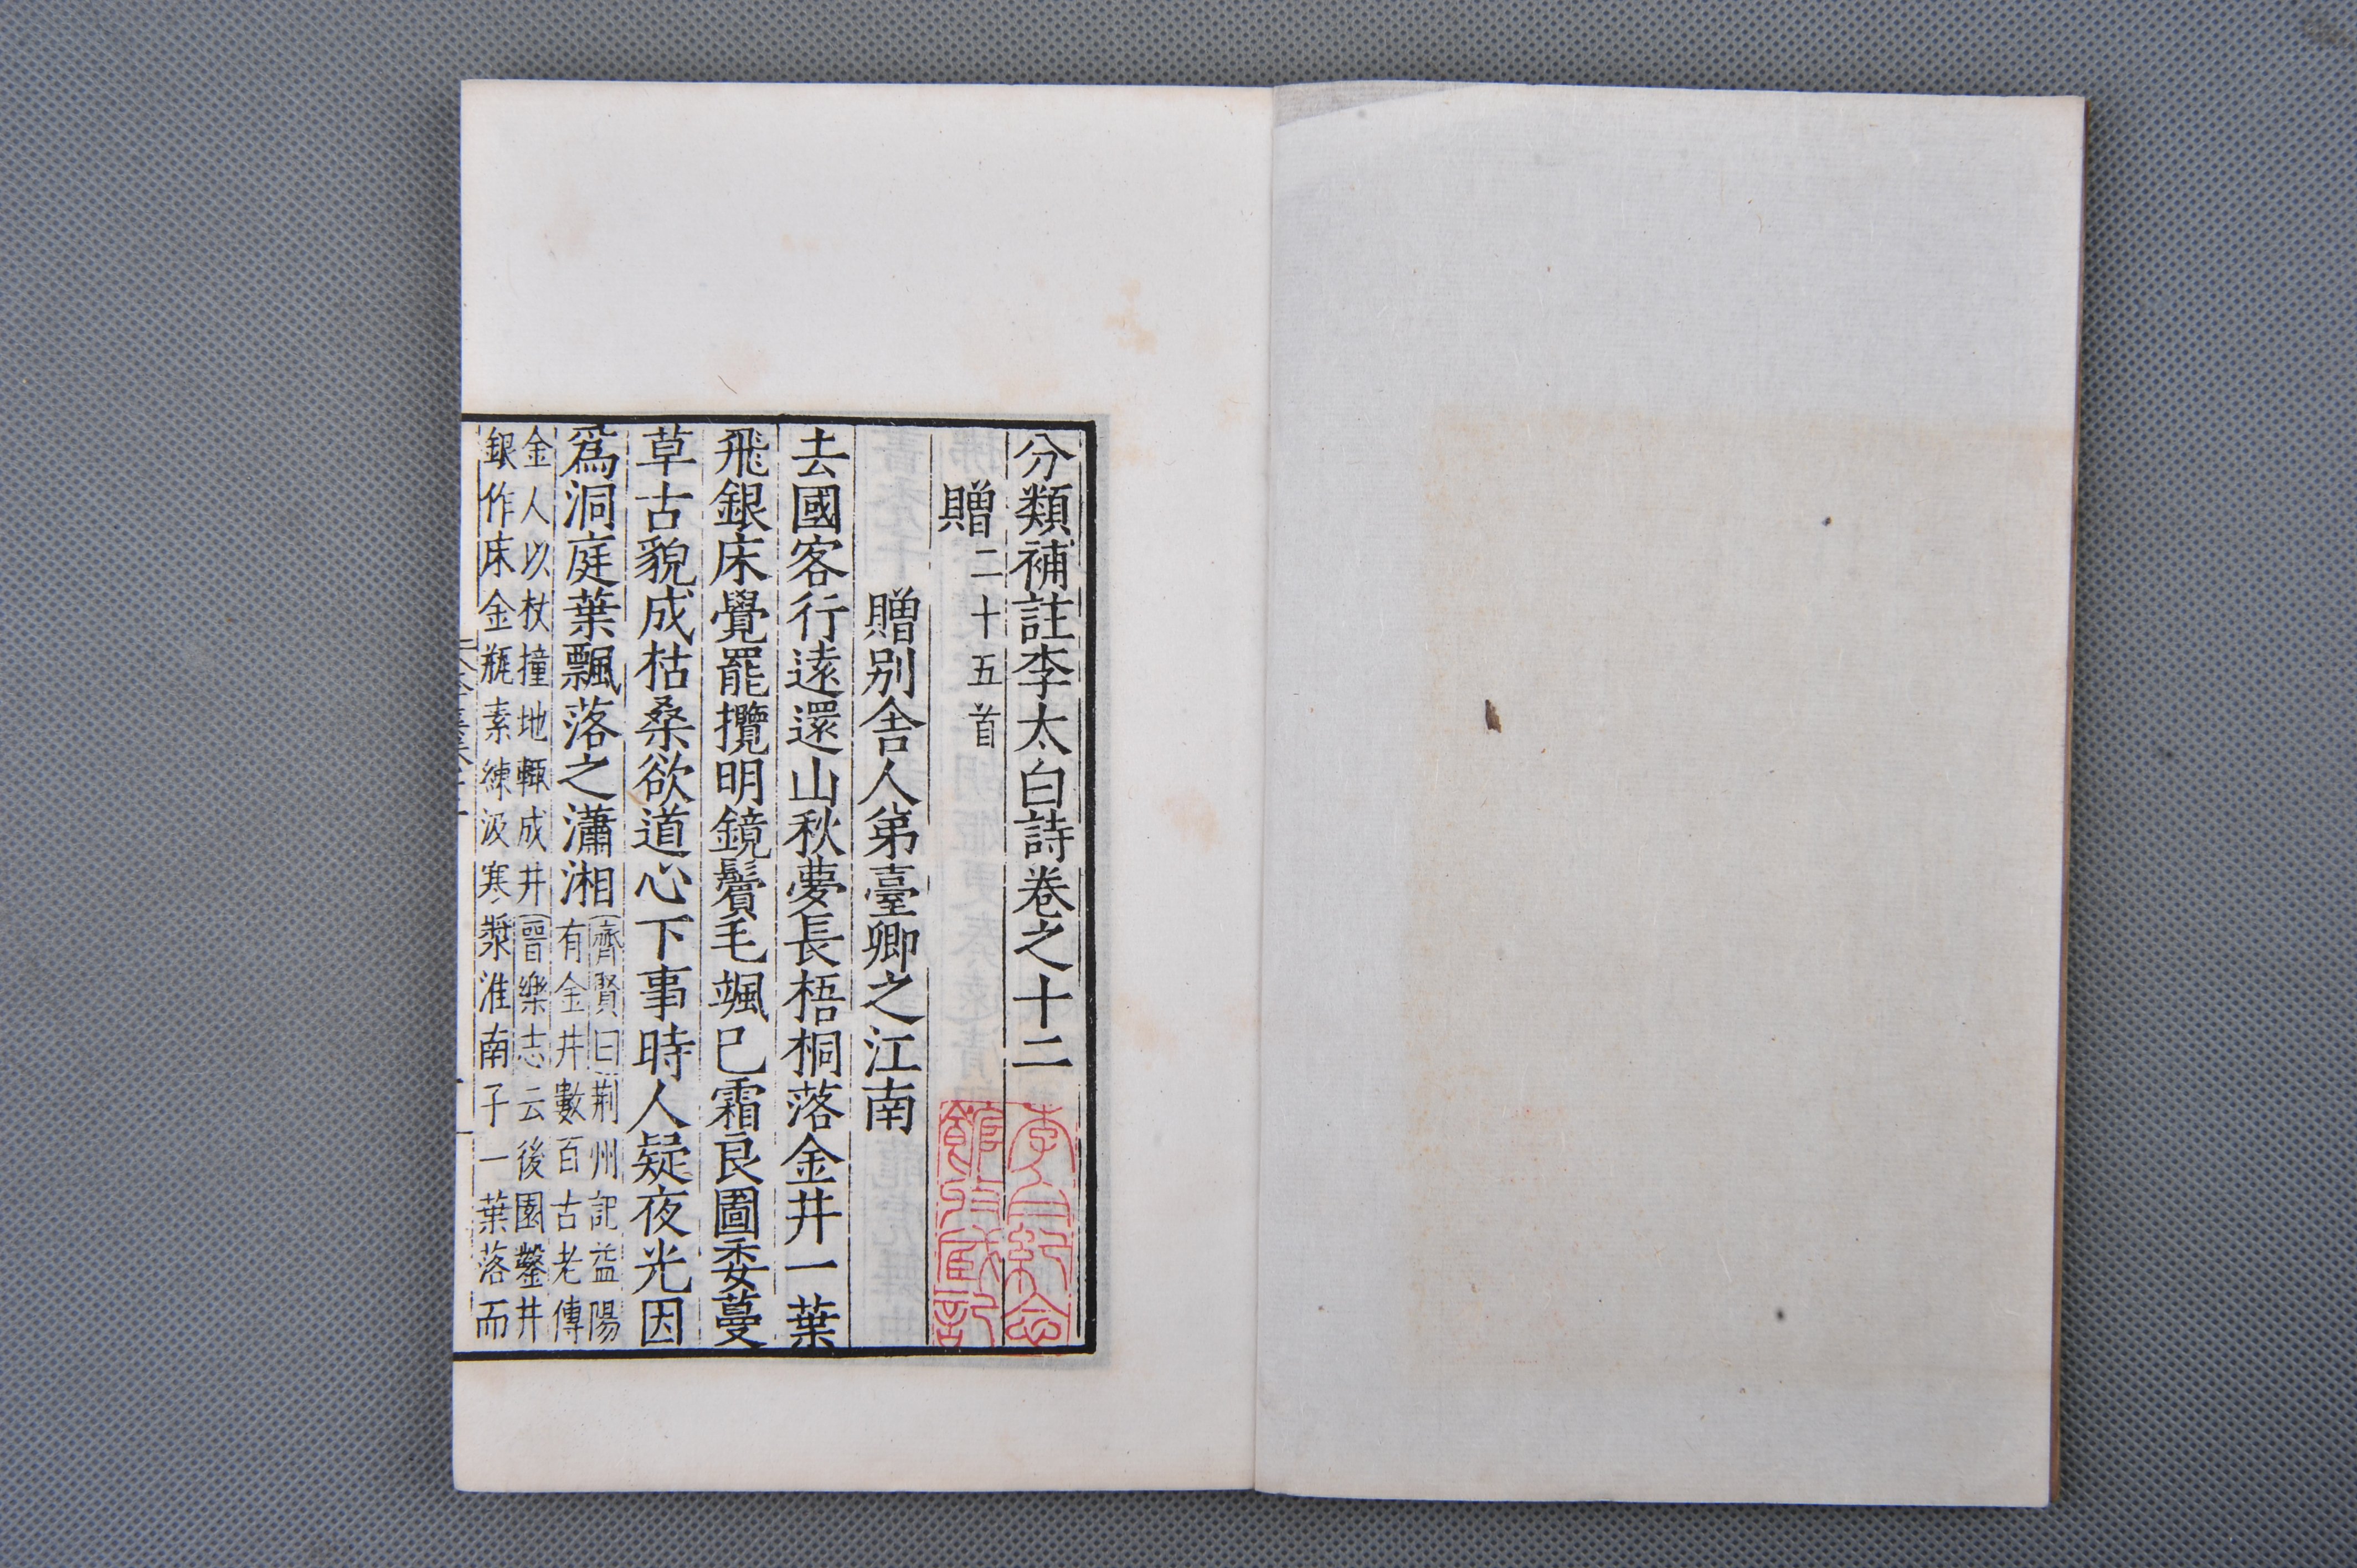 分類補註李太白詩卷之十二
贈二十五首
贈别舍人弟臺卿之江南
去國客行遠還山秋夢長梧桐落金井一葉
飛銀床覺罷攬明鏡鬢毛颯已霜良圖委蔓
草古貌成枯桑欲道心下事時人疑夜光因
爲洞庭葉飄落之瀟湘
齊賢曰荆州記益陽
有金井數百古老傳
金人以杖撞地輒成井晉樂志云後園鑿井
銀作床金瓶素綆汲寒漿淮南子一葉落而
李白紀念
館收藏記